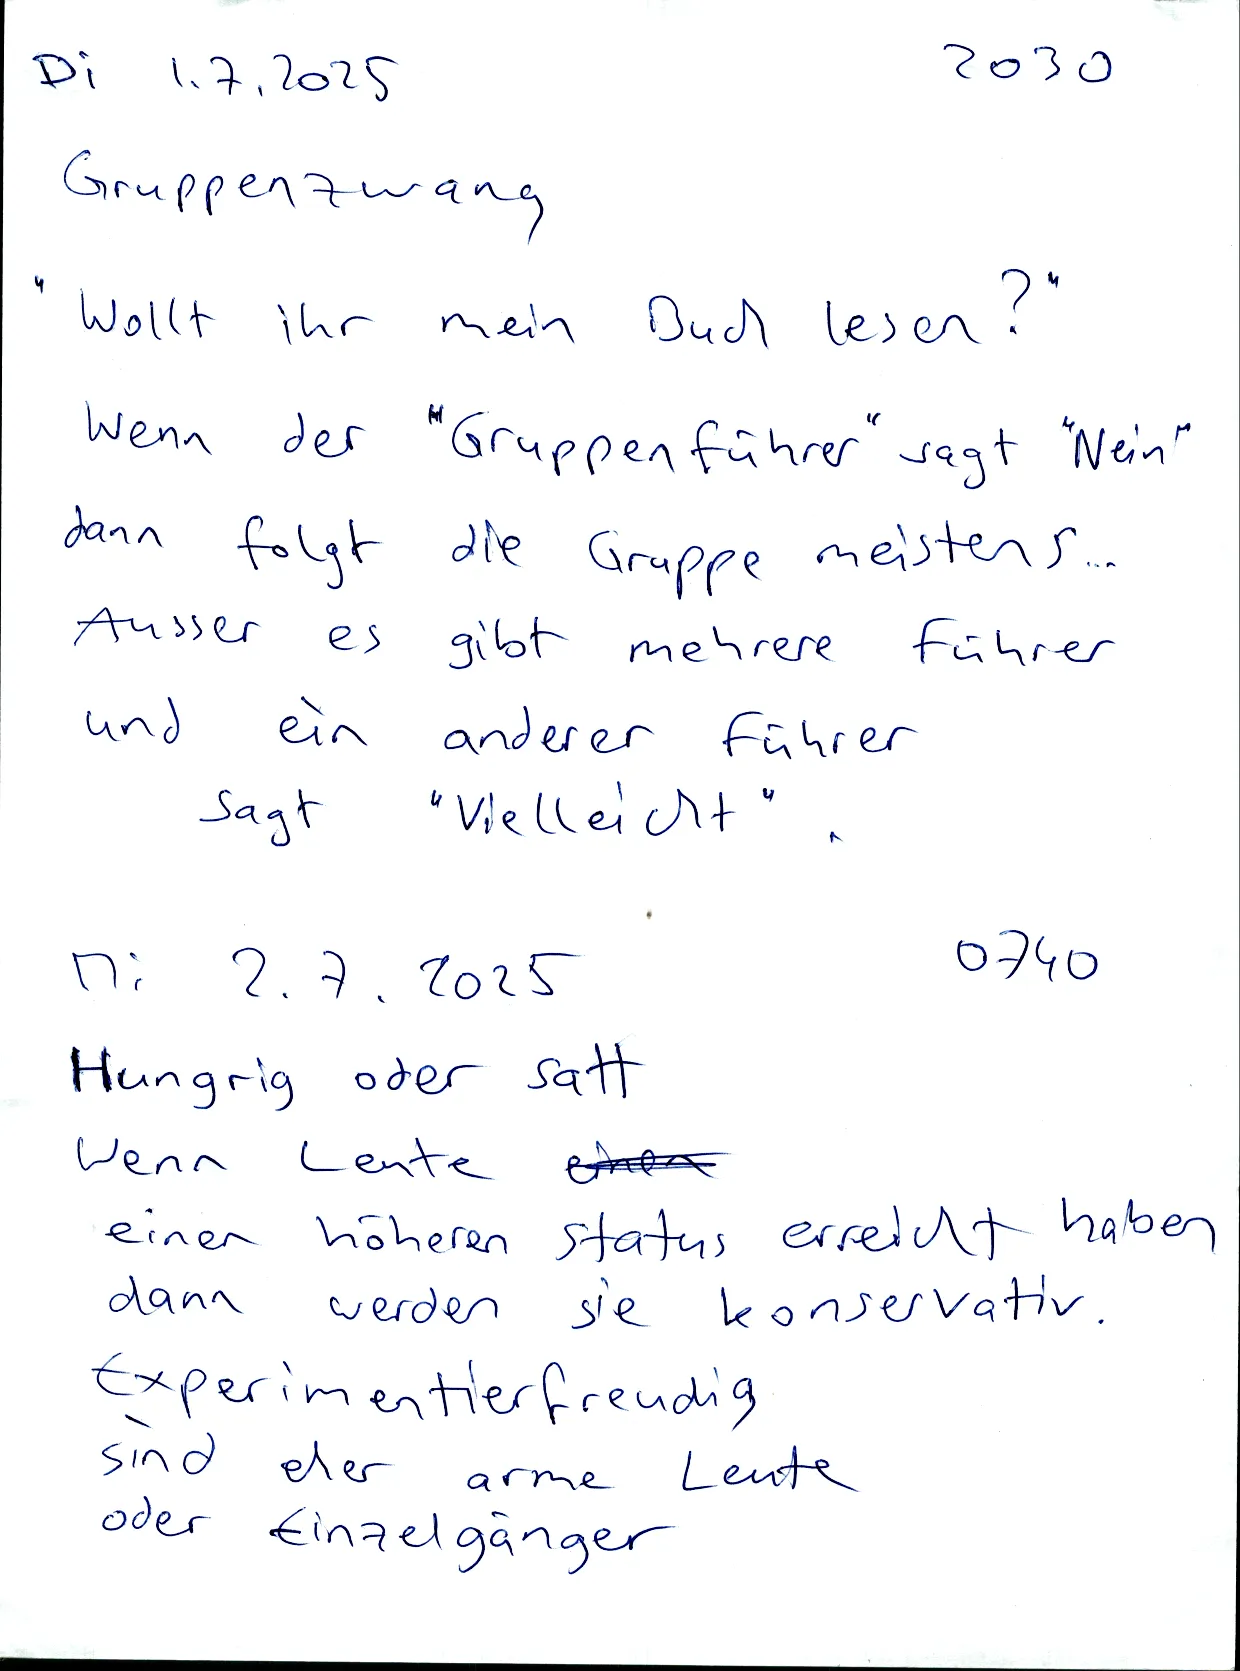 Di 1.7.2025 2030
Gruppenzwang
"Wollt ihr mein Buch lesen?"
Wenn der "Gruppenführer" sagt "Nein"
dann folgt die Gruppe meistens...
Ausser es gibt mehrere Führer
und ein anderer Führer
sagt "Vielleicht".
Mi 2.7.2025 0740
Hungrig oder satt
Wenn Leute einen
einen höheren Status erreicht haben
dann werden sie konservativ.
Experimentierfreudig
sind eher arme Leute
oder Einzelgänger